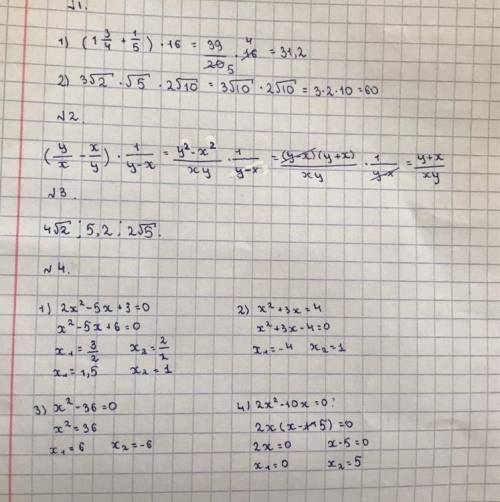 №1.
1) (1 3/4 + 1/5) · 16 = 39/20 5 · 16 4 = 31,2
2) 3√2 · √5 · 2√10 = 3√10 · 2√10 = 3·2·10 = 60
№2.
(y/x - x/y) · 1/(y-x) = (y²-x²)/(xy) · 1/(y-x) = ((y-x)(y+x))/(xy) · 1/(y-x) = (y+x)/(xy)
№3
4√2 ; 5,2 ; 2√5.
№4.
1) 2x²-5x+3=0
x²-5x+6=0
x₁ = 3/2 x₂ = 2/2
x₁ = 1,5 x₂ = 1
2) x²+3x=4
x²+3x-4=0
x₁=-4 x₂=1
3) x²-36=0
x²=36
x₁=6 x₂=-6
4) 2x²-10x=0
2x(x-5)=0
2x=0 x-5=0
x₁=0 x₂=5